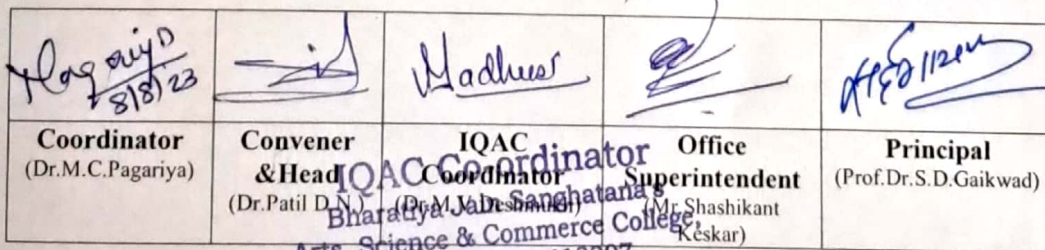 Pagariya
8/8/23
Madhusr
Coordinator
(Dr.M.C.Pagariya)
Convener
&Head
(Dr.Patil D.N.)
IQAC
Coordinator
(Dr.M.V.Deshmukh)
Office
Superintendent
(Mr.Shashikant
Keskar)
Principal
(Prof.Dr.S.D.Gaikwad)
IQAC Co-ordinator
Bharatiya Jain Sanghatana's
Arts, Science & Commerce College,